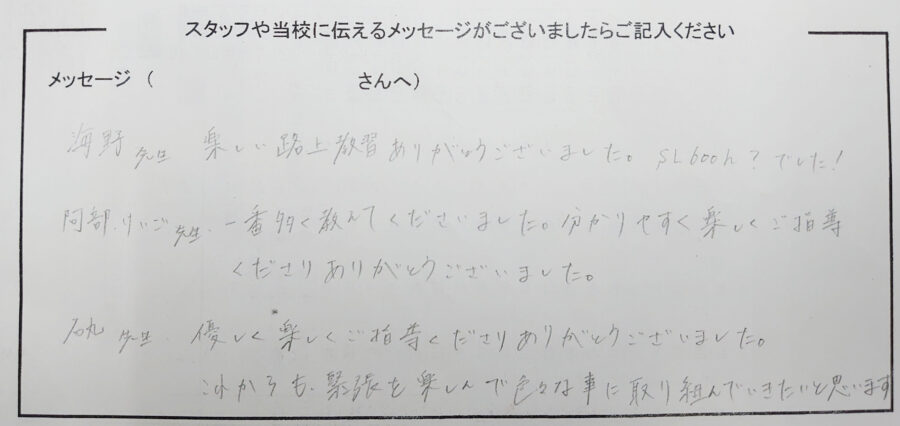 スタッフや当校に伝えるメッセージがございましたらご記入ください
メッセージ（ さんへ）
海野先生 楽しい路上教習ありがとうございました。SL600h？でした！
阿部.りいご先生. 一番多く教えてくださいました。分かりやすく楽しくご指導
くださりありがとうございました。
石丸先生. 優しく楽しくご指導くださりありがとうございました。
これからも、緊張を楽しんで色々な事に取り組んでいきたいと思います